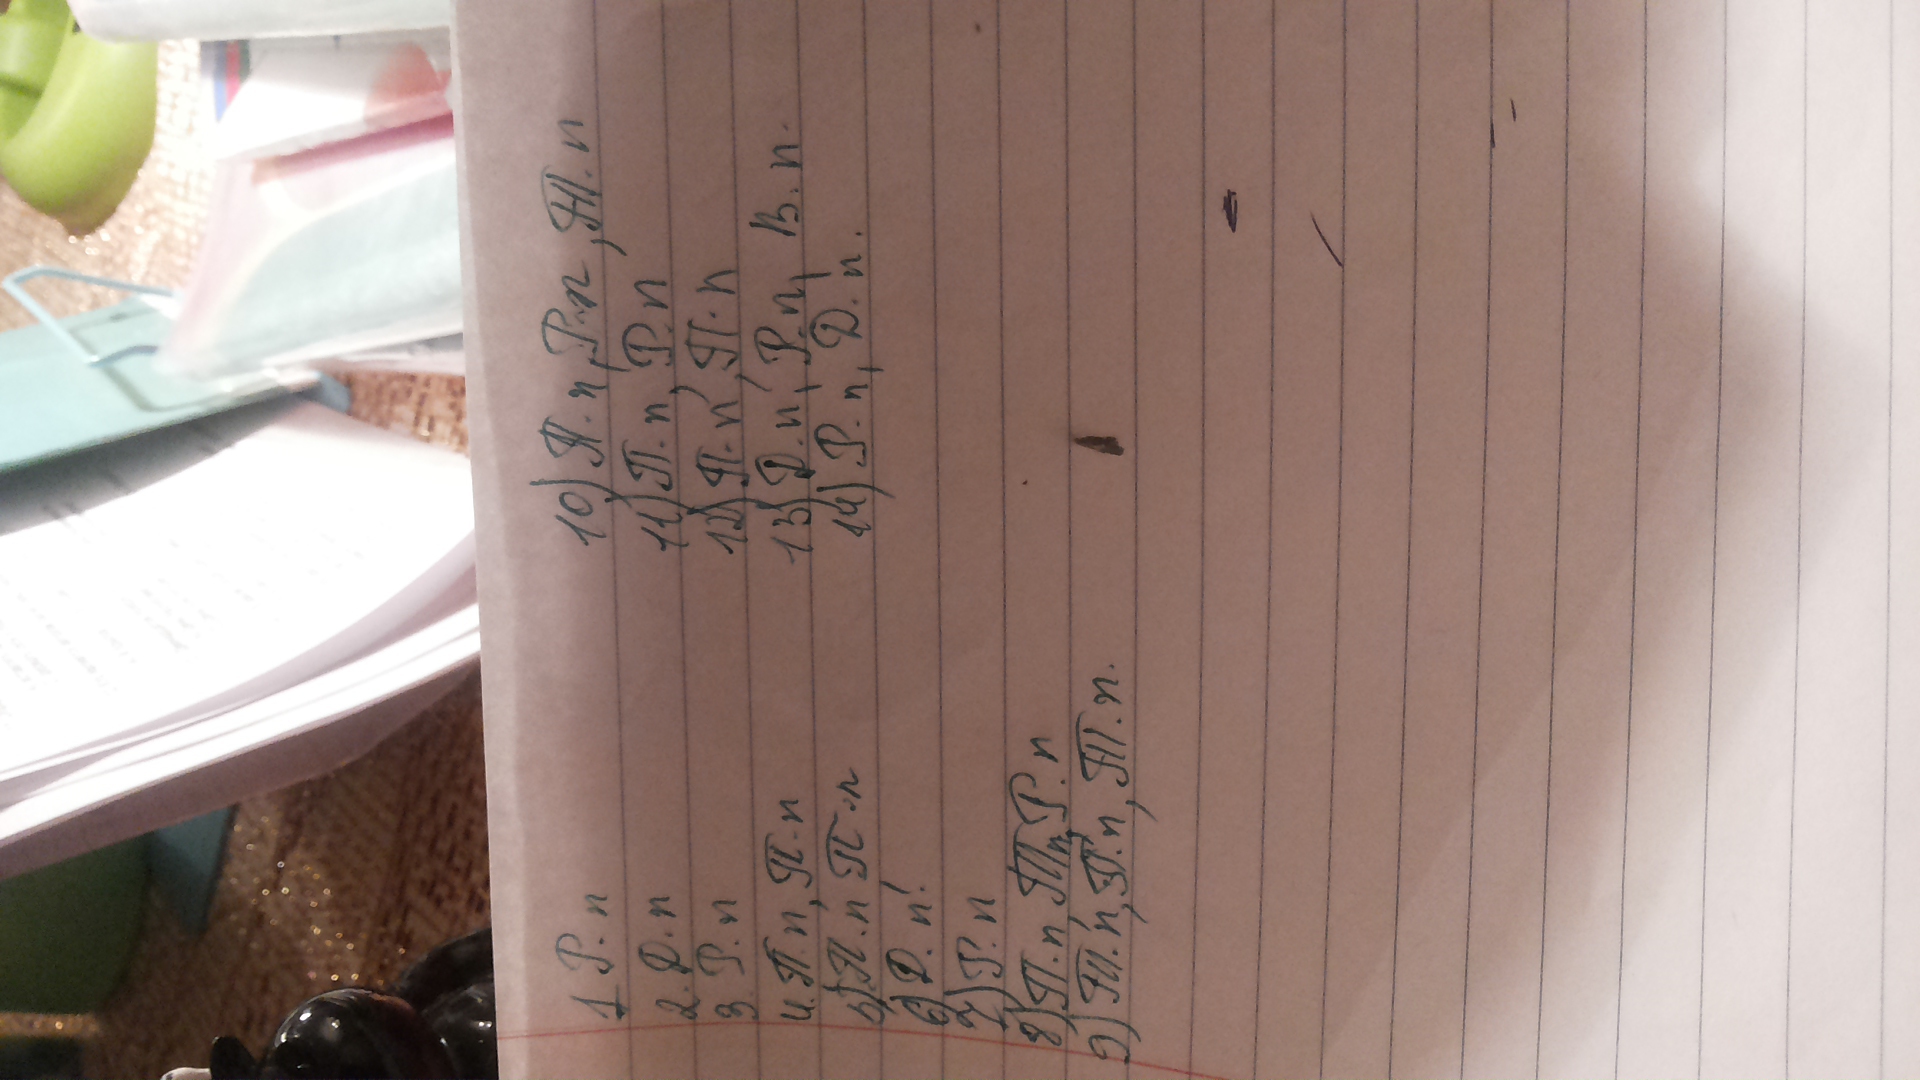 1 Р.п
2. Д.п
3. Р.п
4. П.п, П.п
5) П.п, П.п
6) Д.п.
7) Р.п
8) П.п, Тп, Р.п
9) Тп.п, П.п, Тп.п.
10) П.п, Р.п, Тп.п
11) П.п, Р.п
12) П.п, П.п
13) Д.п, Р.п, В.п.
14) Р.п, Д.п.